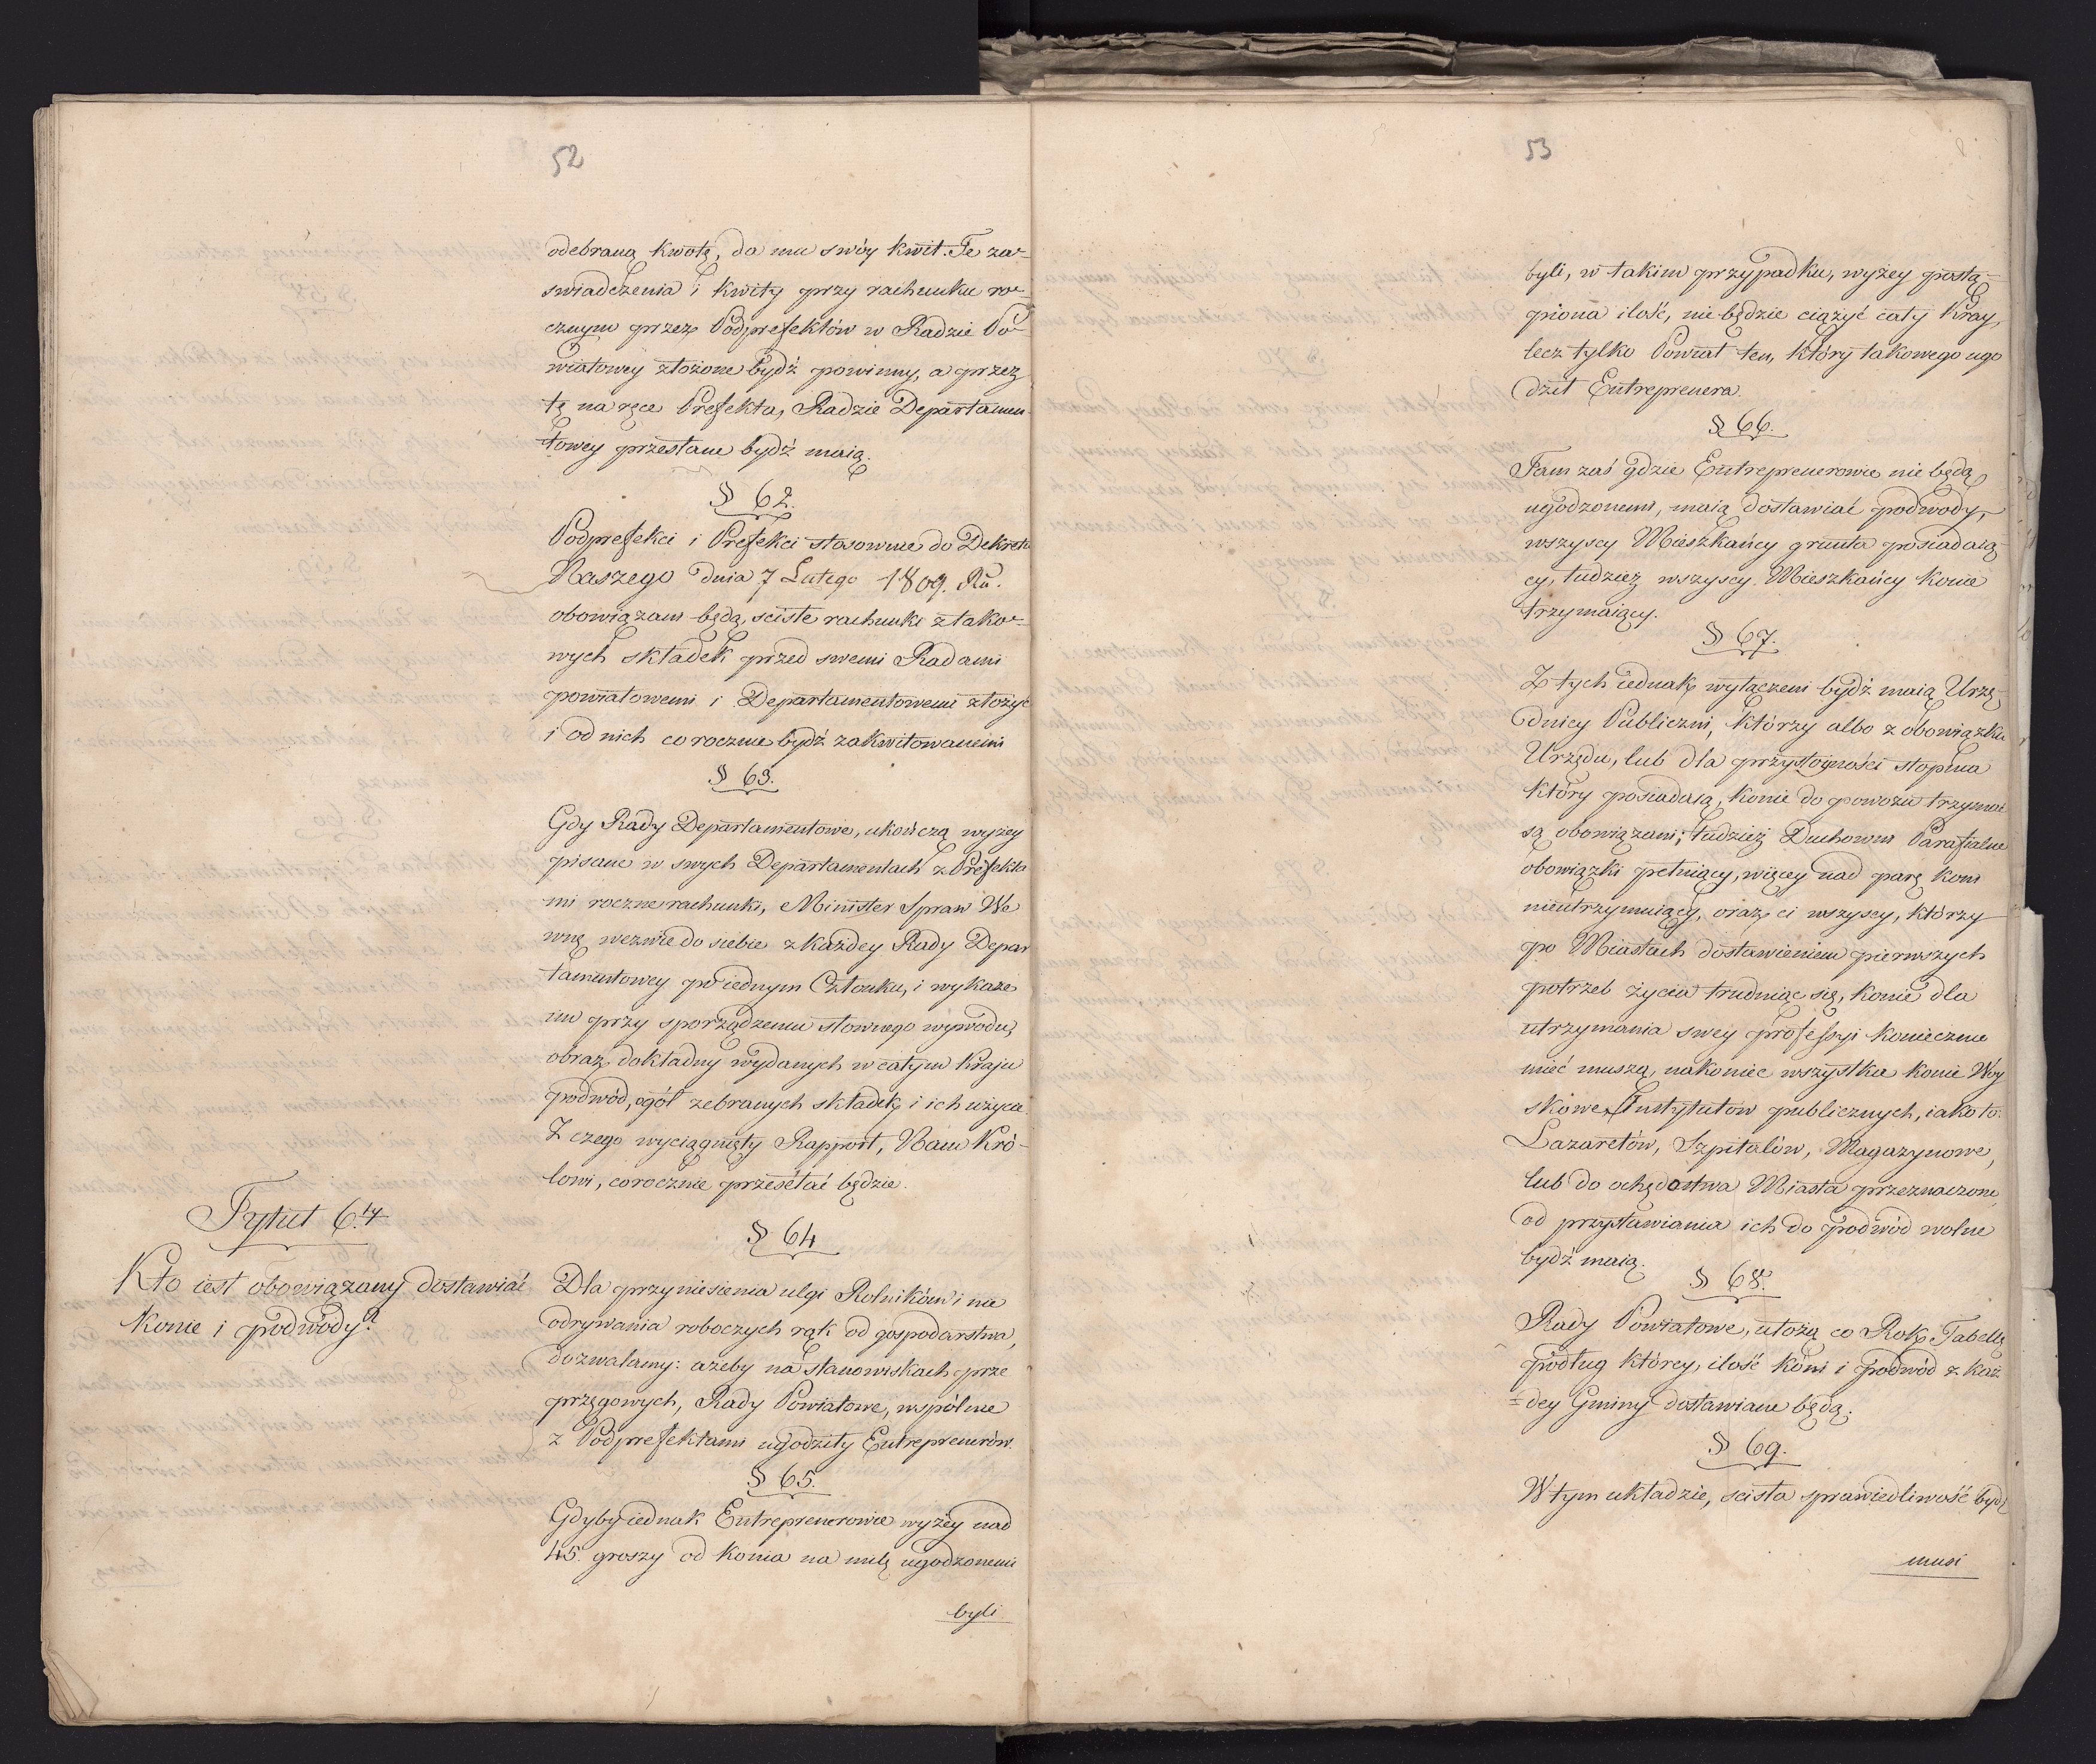 52
odebraną kwotę, da mu swóy kwit. Te za-
swiadczenia i kwity przy rachunku ro-
cznym przez Podprefektów w Radzie Po-
wiatowey złożone bydź powinny, a przez
tę na ręce Prefekta, Radzie Departamen
towey przesłane bydź maią.
§ 62.
Podprefekci i Prefekci stosownie do Dekretu
Naszego dnia 7 Lutego 1809. Ru.
obowiązani będą, scisłe rachunki z tako-
wych składek przed swemi Radami
powiatowemi i Departamentowemi złożyć
i od nich corocznie bydź zakwitowanemi
§ 63.
Gdy Rady Departamentowe, ukończą wyżey
pisane w swych Departamentach z Prefekta
mi roczne rachunki, Minister Spraw We
wnę wezwie do siebie z każdey Rady Depar
tamentowey po iednym Członku, i wykaże
im przy sporządzeniu słownego wywodu,
obraz dokładny wydanych w całym Kraju
podwód, ogół zebranych składek i ich użycie.
Z czego wyciągnięty Rapport, Nam Kró-
lowi, corocznie przesełać będzie.
Tytuł 6.ty
Kto iest obowiązany dostawiać
Konie i podwody?
§ 64
Dla przyniesienia ulgi Rolników i nie
odrywania roboczych rąk od gospodarstwa,
dozwalamy: ażeby na stanowiskach prze
przęgowych, Rady Powiatowe, wspólnie
z Podprefektami ugodziły Entreprenerów.
§ 65.
Gdyby iednak Entreprenerowie wyżey nad
45. groszy od konia na milę ugodzonemi
byli
53
byli, w takim przypadku, wyżey postą-
piona ilość, nie będzie ciążyć cały Kray,
lecz tylko Powiat ten, który takowego ugo
dził Entreprenera.
§ 66.
Tam zaś gdzie Entreprenerowie nie będą
ugodzonemi, maią dostawiać podwody,
wszyscy Mieszkańcy grunta posiadaią
cy, tudzież wszyscy Mieszkańcy Konie
trzymaiący.
§ 67.
Z tych iednak wyłączeni bydź maią Urzę-
dnicy Publiczni, którzy albo z obowiązku
Urzędu, lub dla przystoyności stopnia
który posiadaią, konie do powozu trzymać
są obowiązani; tudzież Duchowni Parafialne
obowiązki pełniący, więcey nad parę koni
nieutrzymuiący, oraz ci wszyscy, którzy
po Miastach dostawieniem pierwszych
potrzeb życia trudniąc się, konie dla
utrzymania swey professyi koniecznie
mieć muszą, nakoniec wszystkie konie Woy
skowe, Instytutow publicznych, iako to:
Lazaretów, Szpitalów, Magazynowe,
lub do ochędostwa Miasta przeznaczone
od przystawiania ich do podwód wolne
bydź maią.
§ 68.
Rady Powiatowe, ułożą co Rok Tabellę
podług którey, ilość koni i podwód z każ
=dey Gminy dostawiane będą.
§ 69.
W tym układzie, scisła sprawiedliwość bydź
musi